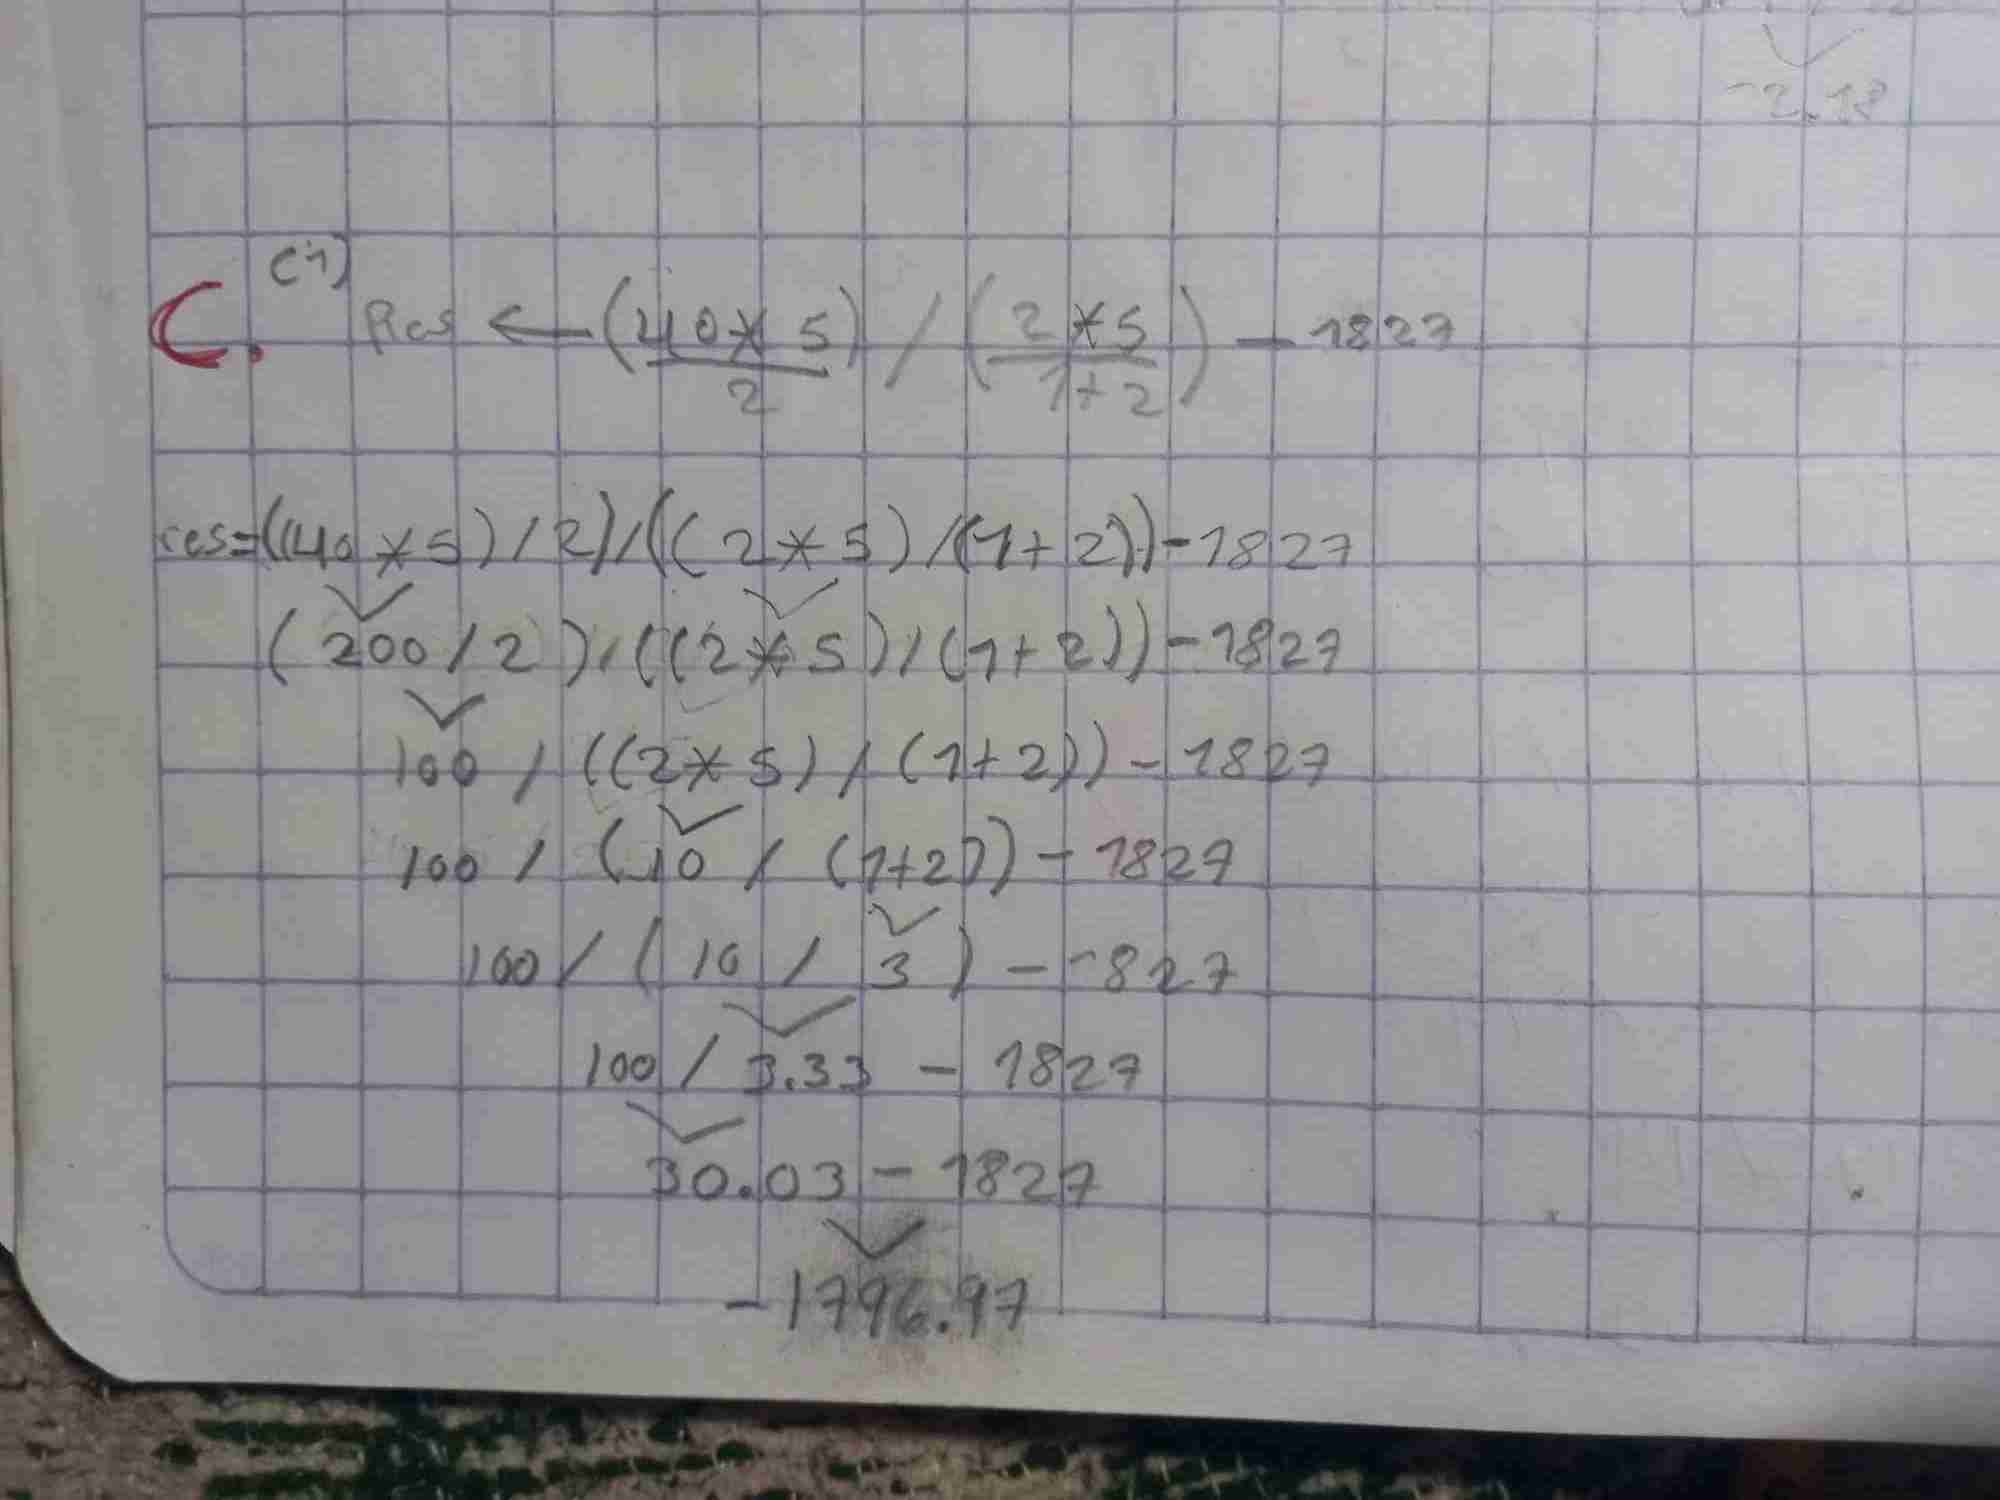 -2.18
(1)
C. Res ← (40*5/2) / (2*5/1+2) - 1827
res=((40*5)/2)/((2*5)/(1+2))-1827
(200/2)/((2*5)/(1+2))-1827
100/((2*5)/(1+2))-1827
100/(10/(1+2))-1827
100/(10/3)-1827
100/3.33-1827
30.03-1827
-1796.97